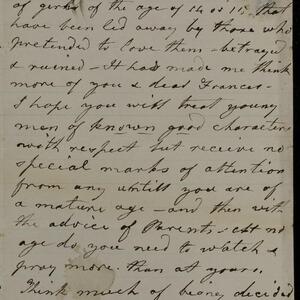 of girls of the age of 14 or 15 that
have been led away by those who
pretended to love them - betrayed
& ruined - It has made me think
more of you & dear Frances -
I hope you will treat young
men of known good characters
with respect but receive no
special marks of attention
from any untill you are of
a mature age - and then with
the advice of Parents - at no
age do you need to watch &
pray more than at yours.
Think much of being decided